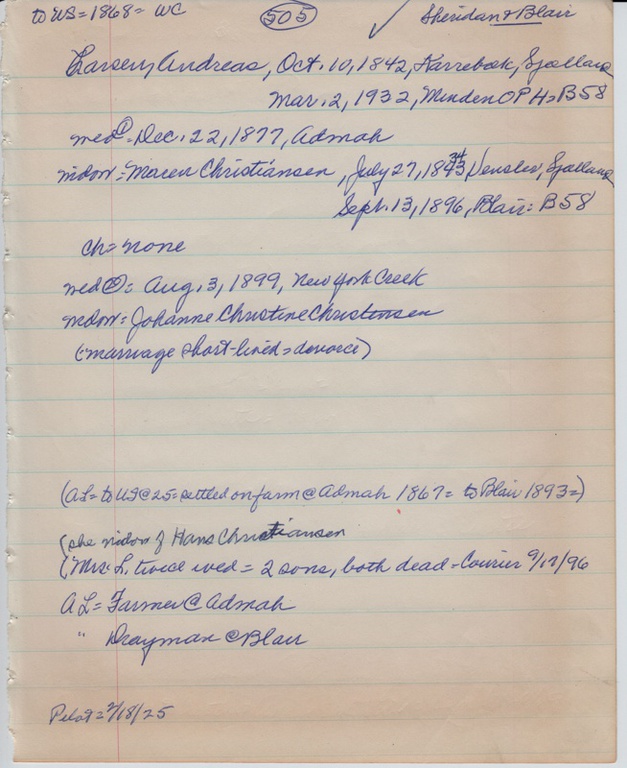 to US = 1868 = WC 505 ✓ Sheridan + Blair
Larsen, Andreas, Oct. 10, 1842, Karrebæk, Sjælland
Mar. 2, 1932, Minden OPH = B58
wed ① = Dec. 22, 1877, Admah
widow = Maren Christiansen, July 27, 1843 34 Venslev, Sjælland
Sept. 13, 1896, Blair = B58
ch = none
wed ② = Aug. 3, 1899, New York Creek
widow = Johanne Christine Christensen
(marriage short-lived = divorce)
(AL = to US @ 25 = settled on farm @ Admah 1867 = to Blair 1893 =)
(she widow of Hans Christiansen
(Mrs. L. twice wed = 2 sons, both dead - Courier 9/17/96
AL = Farmer @ Admah
" Drayman @ Blair
Pilot = /18/25